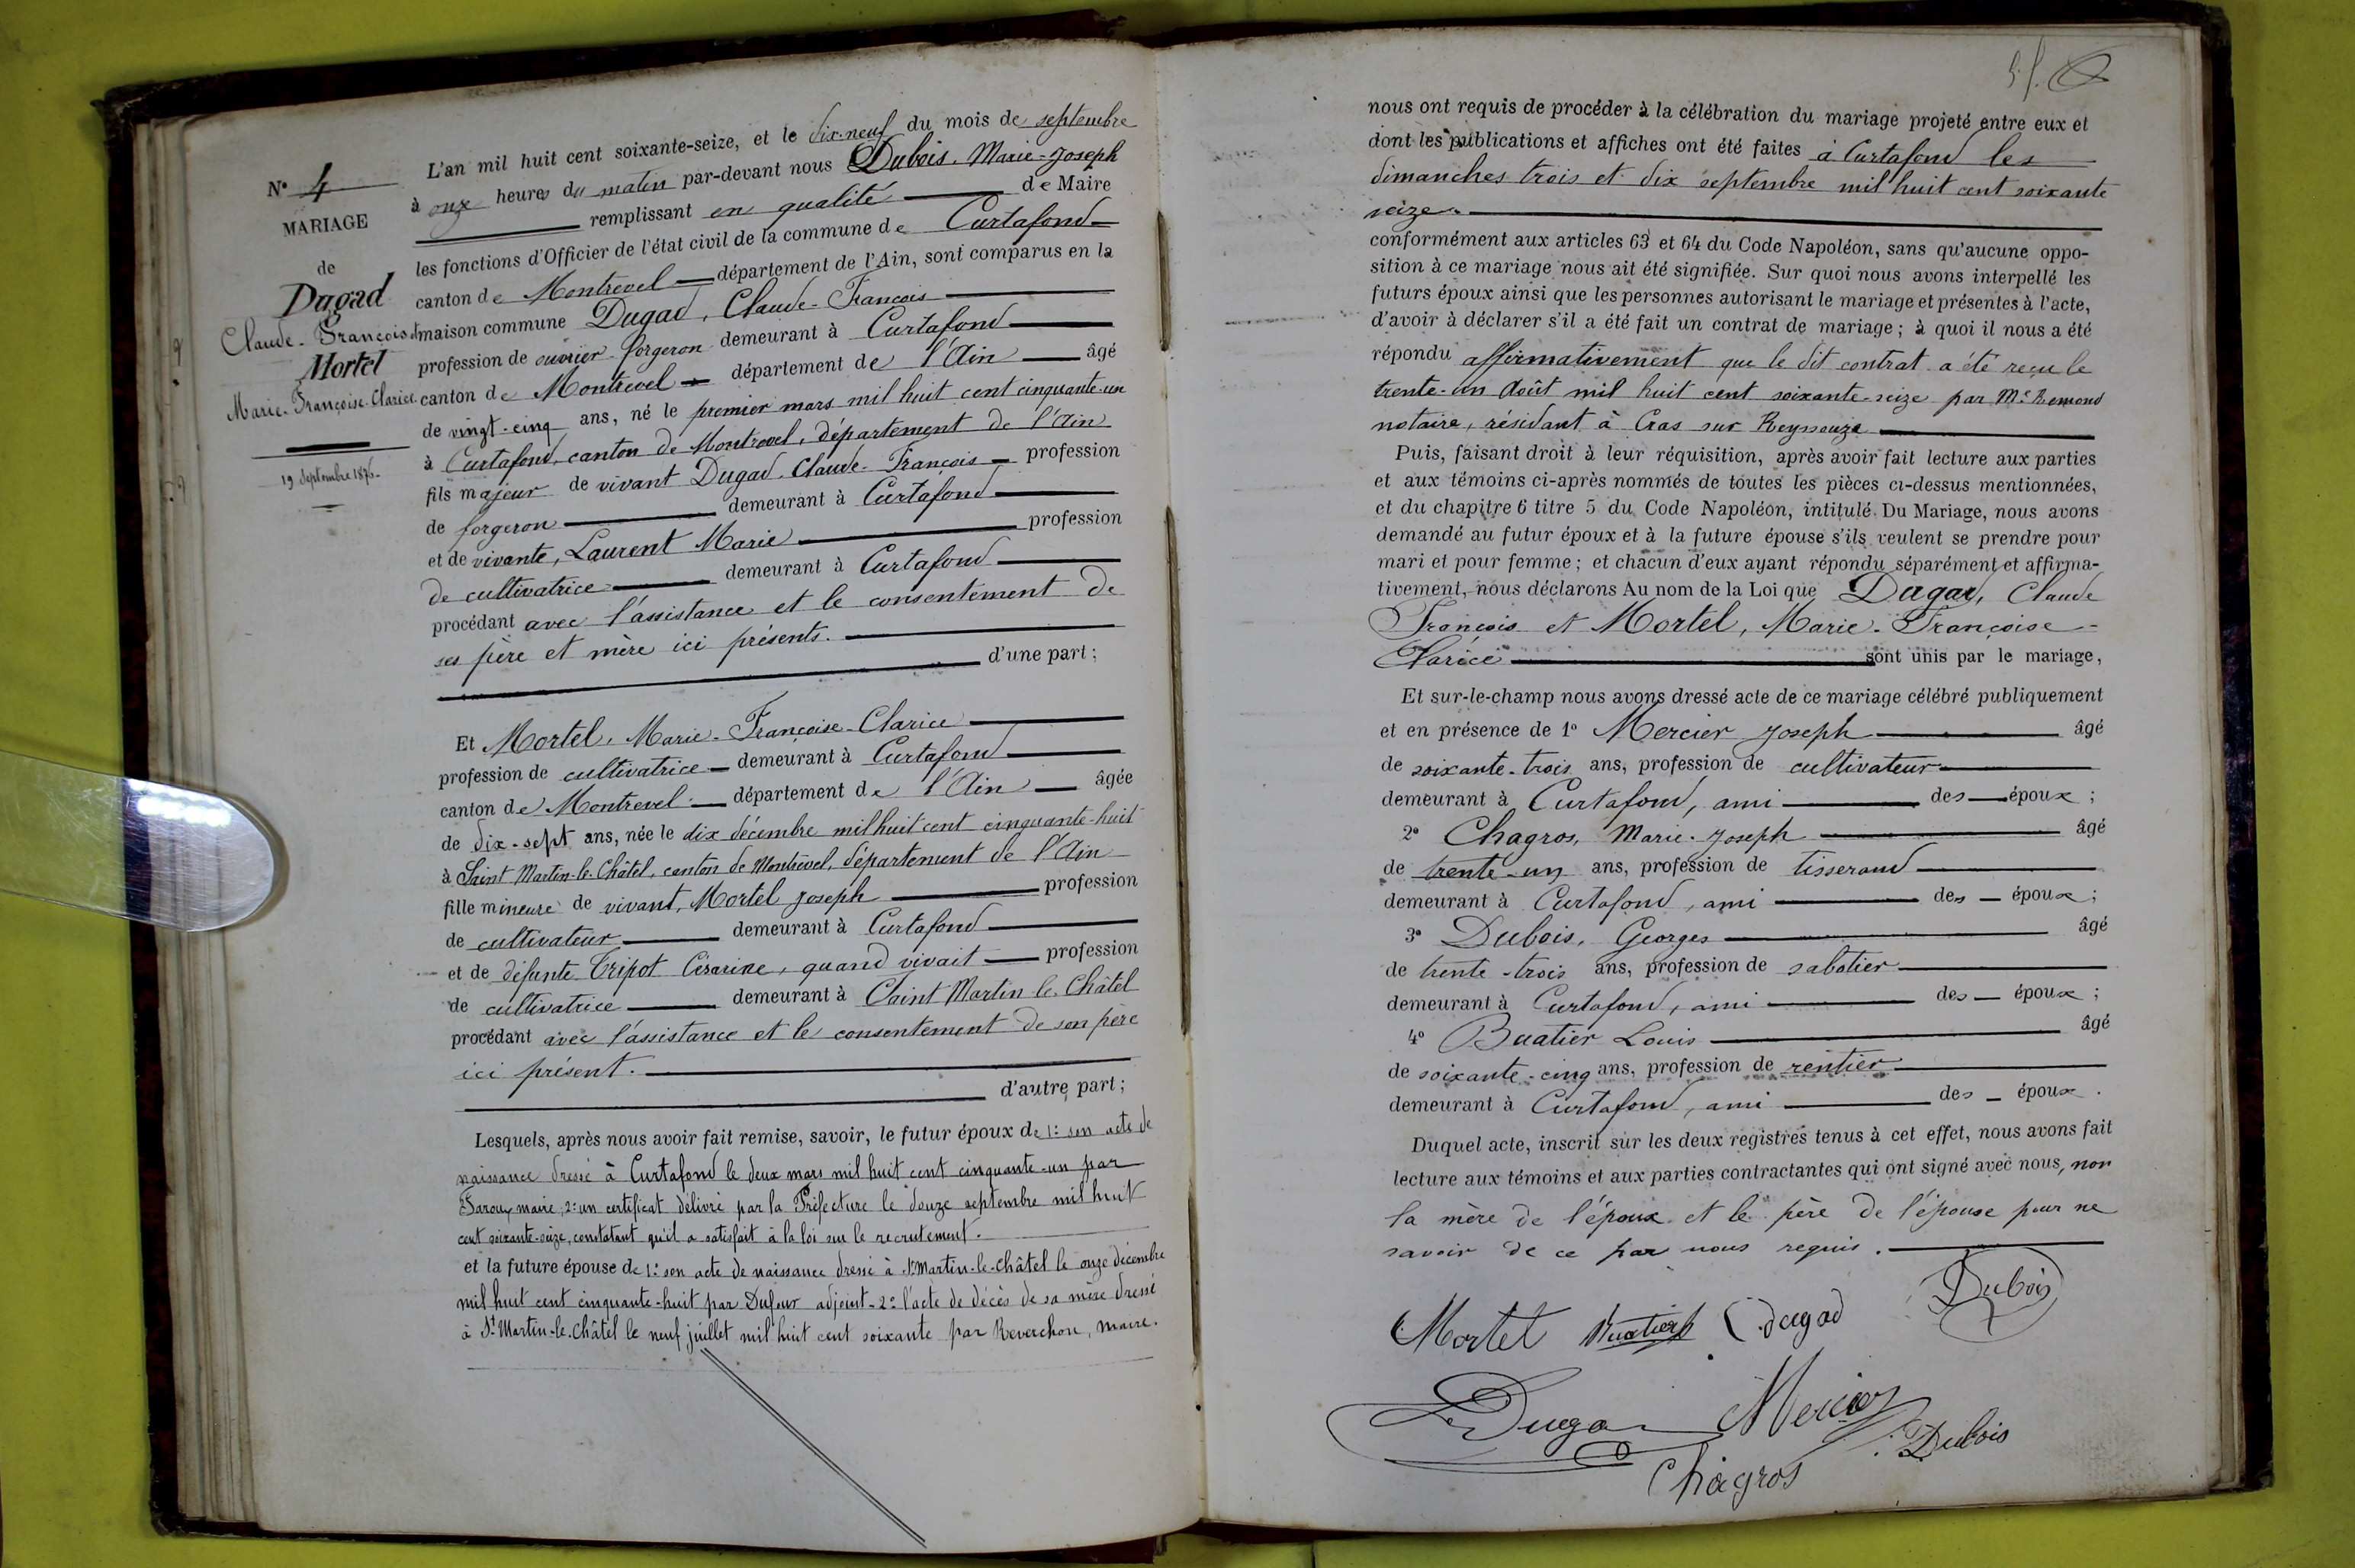 N° 4
MARIAGE
de
Dugad
Claude-François et
Mortel
Marie-Françoise-Clarice
19 Septembre 1876.
L'an mil huit cent soixante-seize, et le dix-neuf du mois de septembre
à onze heures du matin par-devant nous Dubois, Marie-Joseph
remplissant en qualité de Maire
les fonctions d'Officier de l'état civil de la commune de Curtafond
canton de Montrevel département de l'Ain, sont comparus en la
maison commune Dugad, Claude-François
profession de ouvrier forgeron demeurant à Curtafond
canton de Montrevel département de l'Ain âgé
de vingt-cinq ans, né le premier mars mil huit cent cinquante-un
à Curtafond, canton de Montrevel, département de l'Ain
fils majeur de vivant Dugad, Claude-François profession
de forgeron demeurant à Curtafond
et de vivante, Laurent Marie profession
de cultivatrice demeurant à Curtafond
procédant avec l'assistance et le consentement de
ses père et mère ici présents.
d'une part;
Et Mortel, Marie-Françoise-Clarice
profession de cultivatrice demeurant à Curtafond
canton de Montrevel département de l'Ain âgée
de dix-sept ans, née le dix décembre mil huit cent cinquante-huit
à Saint Martin-le-Châtel, canton de Montrevel, département de l'Ain
fille mineure de vivant, Mortel Joseph profession
de cultivateur demeurant à Curtafond
et de défunte Tripot Césarine, quand vivait profession
de cultivatrice demeurant à Saint Martin-le-Châtel
procédant avec l'assistance et le consentement de son père
ici présent.
d'autre part;
Lesquels, après nous avoir fait remise, savoir, le futur époux de 1° son acte de
naissance dressé à Curtafond le deux mars mil huit cent cinquante-un par
maire; 2° un certificat délivré par la Préfecture le douze septembre mil huit
cent soixante-seize, constatant qu'il a satisfait à la loi sur le recrutement.
et la future épouse de 1° son acte de naissance dressé à St Martin-le-Châtel le onze décembre
mil huit cent cinquante-huit par Dufour adjoint - 2° l'acte de décès de sa mère dressé
à St Martin-le-Châtel le neuf juillet mil huit cent soixante par Reverchon, maire.
nous ont requis de procéder à la célébration du mariage projeté entre eux et
dont les publications et affiches ont été faites à Curtafond les
dimanches trois et dix septembre mil huit cent soixante
seize.
conformément aux articles 63 et 64 du Code Napoléon, sans qu'aucune oppo-
sition à ce mariage nous ait été signifiée. Sur quoi nous avons interpellé les
futurs époux ainsi que les personnes autorisant le mariage et présentes à l'acte,
d'avoir à déclarer s'il a été fait un contrat de mariage; à quoi il nous a été
répondu affirmativement que le dit contrat a été reçu le
trente-un Août mil huit cent soixante-seize par Me Remond
notaire, résidant à Cras sur Reyssouze
Puis, faisant droit à leur réquisition, après avoir fait lecture aux parties
et aux témoins ci-après nommés de toutes les pièces ci-dessus mentionnées,
et du chapitre 6 titre 5 du Code Napoléon, intitulé Du Mariage, nous avons
demandé au futur époux et à la future épouse s'ils veulent se prendre pour
mari et pour femme; et chacun d'eux ayant répondu séparément et affirma-
tivement, nous déclarons Au nom de la Loi que Dugad, Claude
François et Mortel, Marie-Françoise-
Clarice sont unis par le mariage,
Et sur-le-champ nous avons dressé acte de ce mariage célébré publiquement
et en présence de 1° Mercier Joseph âgé
de soixante-trois ans, profession de cultivateur
demeurant à Curtafond, ami des époux;
2° Chagros, Marie-Joseph âgé
de trente-un ans, profession de tisserand
demeurant à Curtafond, ami des époux;
3° Dubois, Georges âgé
de trente-trois ans, profession de sabotier
demeurant à Curtafond, ami des époux;
4° Buatier Louis âgé
de soixante-cinq ans, profession de rentier
demeurant à Curtafond, ami des époux.
Duquel acte, inscrit sur les deux registres tenus à cet effet, nous avons fait
lecture aux témoins et aux parties contractantes qui ont signé avec nous, non
la mère de l'époux et le père de l'épouse pour ne
savoir de ce par nous requis.
Mortet Buatier Dugad Dubois
Dugad Mercier
Dubois
Chagros